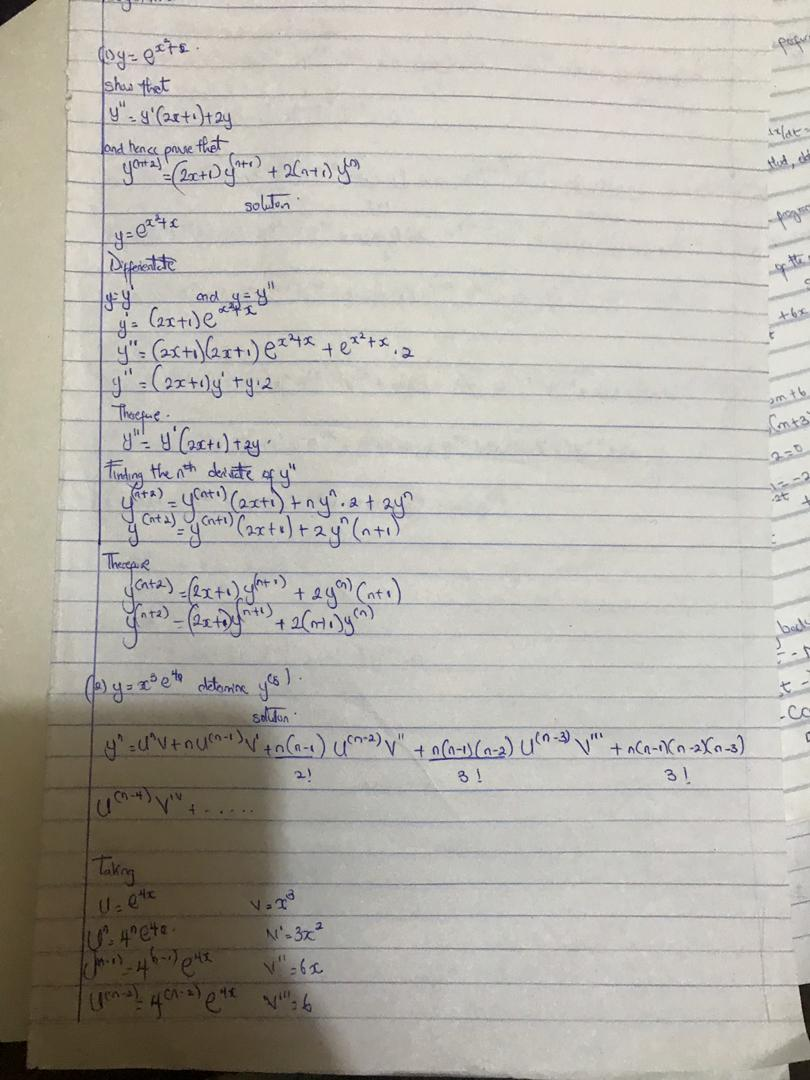 (1) y = e^{x²+x}.
show that
y'' = y'(2x+1)+2y
and hence prove that
y^{(n+2)} = (2x+1) y^{(n+1)} + 2(n+1) y^{(n)}
solution.
y = e^{x²+x}
Differentiate
y = y' and y = y''
y' = (2x+1) e^{x²+x}
y'' = (2x+1)(2x+1) e^{x²+x} + e^{x²+x} . 2
y'' = (2x+1)y' + y.2
Therefore.
y'' = y'(2x+1)+2y.
Finding the nth derivate of y''
y^{(n+2)} = y^{(n+1)} (2x+1) + n y^n . 2 + 2y^n
y^{(n+2)} = y^{(n+1)} (2x+1) + 2 y^n (n+1)
Therefore
y^{(n+2)} = (2x+1) y^{(n+1)} + 2 y^{(n)} (n+1)
y^{(n+2)} = (2x+1) y^{(n+1)} + 2(n+1) y^{(n)}
(2) y = x³ e^{4x} determine y^{(5)}.
solution.
y^n = U^n V + n U^{(n-1)} V' + n(n-1)/2! U^{(n-2)} V'' + n(n-1)(n-2)/3! U^{(n-3)} V''' + n(n-1)(n-2)(n-3)/3!
U^{(n-4)} V^{iv} + ......
Taking
U = e^{4x} V = x³
U^n = 4^n e^{4x}. V' = 3x²
U^{(n-1)} = 4^{(n-1)} e^{4x} V'' = 6x
U^{(n-2)} = 4^{(n-2)} e^{4x} V''' = 6